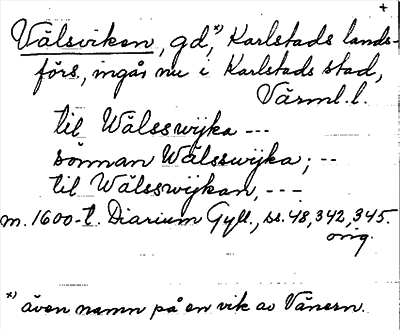 +
Välsviken, gd,*) Karlstads lands-
förs., ingår nu i Karlstads stad,
Värml.l.
til Wälsswijka ---
sönnan Wälsswijka; --
til Wälsswijkan, ---
m. 1600-t. Diarium Gyll., ss. 48, 342, 345.
orig.
*) även namn på en vik av Vänern.